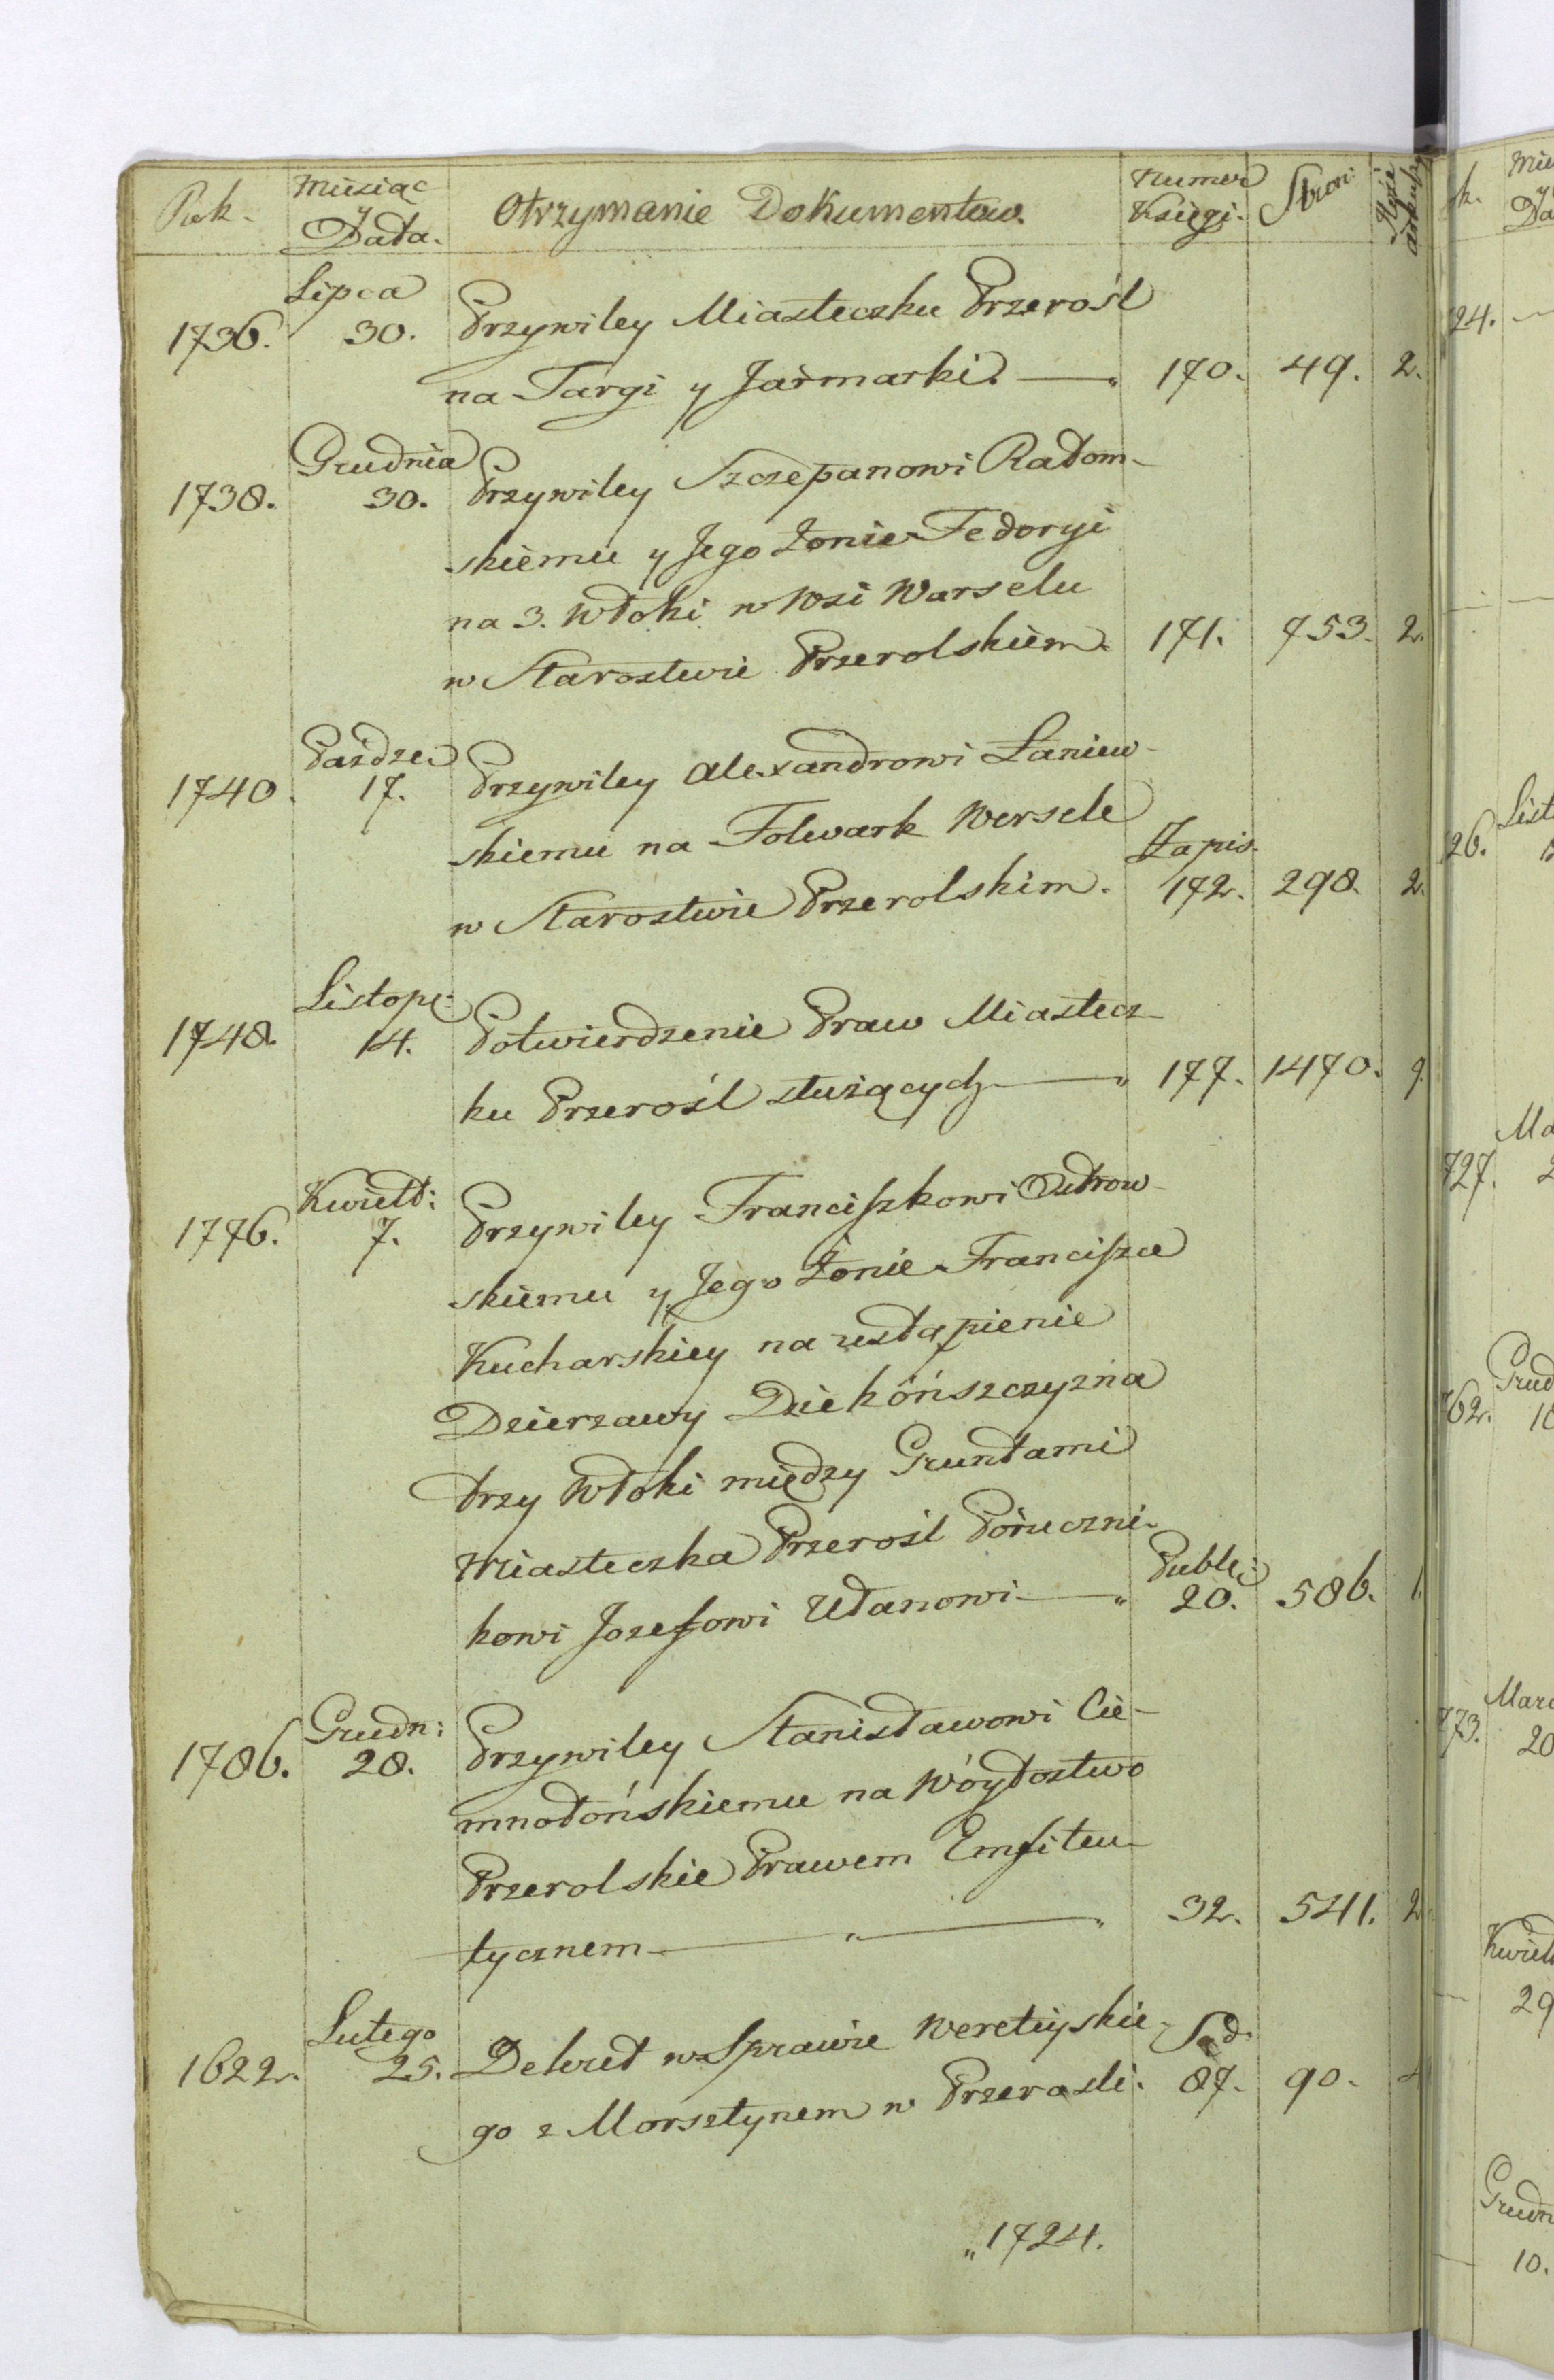 Rok. Miesiąc y Data. Otrzymanie Dokumentow. Numer Księgi. Stron:
Lipca
1736. 30. Przywiley Miasteczku Przerośl
na Targi y Jarmarki. — 170. 49. 2.
Grudnia
1738. 30. Przywiley Szczepanowi Radom-
skiemu y Jego Żonie Fedoryi
na 3. Włoki w Wsi Warselu
w Starostwie Przerolskiem. 171. 753. 2.
Paździe:
1740. 17. Przywiley Alexandrowi Łaniew-
skiemu na Folwark Wersele Zapis.
w Starostwie Przerolskim. 172. 298. 2.
Listop:
1748. 14. Potwierdzenie Praw Miastecz-
ku Przerośl służących — 177. 1470. 9.
Kwiet:
1776. 7. Przywiley Franciszkowi
skiemu y Jego Żonie Franciszce
Kucharskiey na ustąpienie
Dzierzawy Dziekońszczyzna
trzy Włoki między Gruntami
Miasteczka Przerośl Poruczni-
kowi Jozefowi Ułanowi — Publ: 20. 586. 1.
Grudn:
1786. 28. Przywiley Stanisławowi Cie-
mnołońskiemu na Wóytostwo
Przerolskie Prawem Emfiteu-
tycznem — 32. 541. 2.
Lutego
1622. 25. Dekret w Sprawie Weretyskie- Sąd.
go z Morsztynem w Przerośli. 87. 90.
"1724.